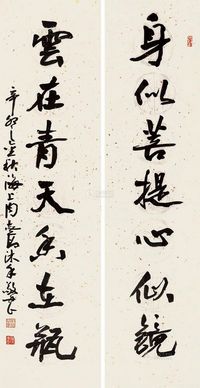 身似菩提心似鏡
雲在青天水在瓶
辛卯之秋海上周沐手敬書